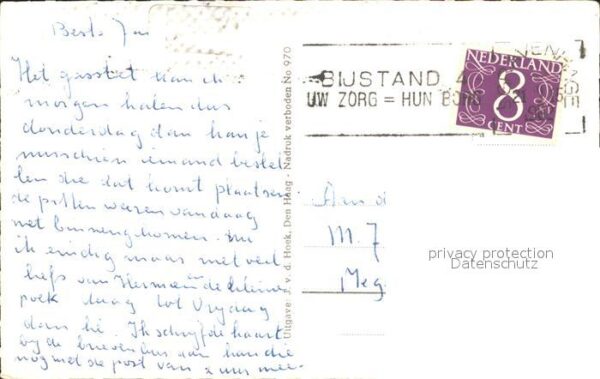 Beste Jan
Het gasstel kan ik
morgen halen dus
donderdag dan kan je
misschien iemand bestel
len die dat komt plaatsen
de putten waren vandaag
net binnengekomen. Nu
ik eindig maar met veel
liefs van Hermien de kleine
en tot Vrijdag
dan hè. Ik schrijf de kaart
bij de brievenbus dan kan die
nog met de post van 2 uur mee
Uitgave: J. v. d. Hoek, Den Haag - Nadruk verboden No 970
BIJSTAND
UW ZORG = HUN
NEDERLAND
8
CENT
Aan d
M. J
Meg
privacy protection
Datenschutz